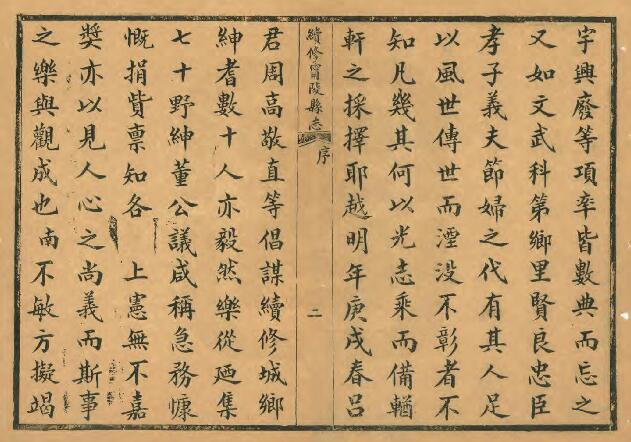 字興廢等項率皆數典而忘之
又如文武科第鄉里賢良忠臣
孝子義夫節婦之代有其人足
以風世傳世而湮没不彰者不
知凡幾其何以光志乘而備輶
軒之採擇耶越明年庚戌春呂
續修甯陵縣志
序
二
君周高敬直等倡謀續修城鄉
紳耆數十人亦毅然樂從廼集
七十野紳董公議咸稱急務慷
慨捐貲禀知各 上憲無不嘉
奬亦以見人心之尚義而斯事
之樂與觀成也南不敏方擬竭